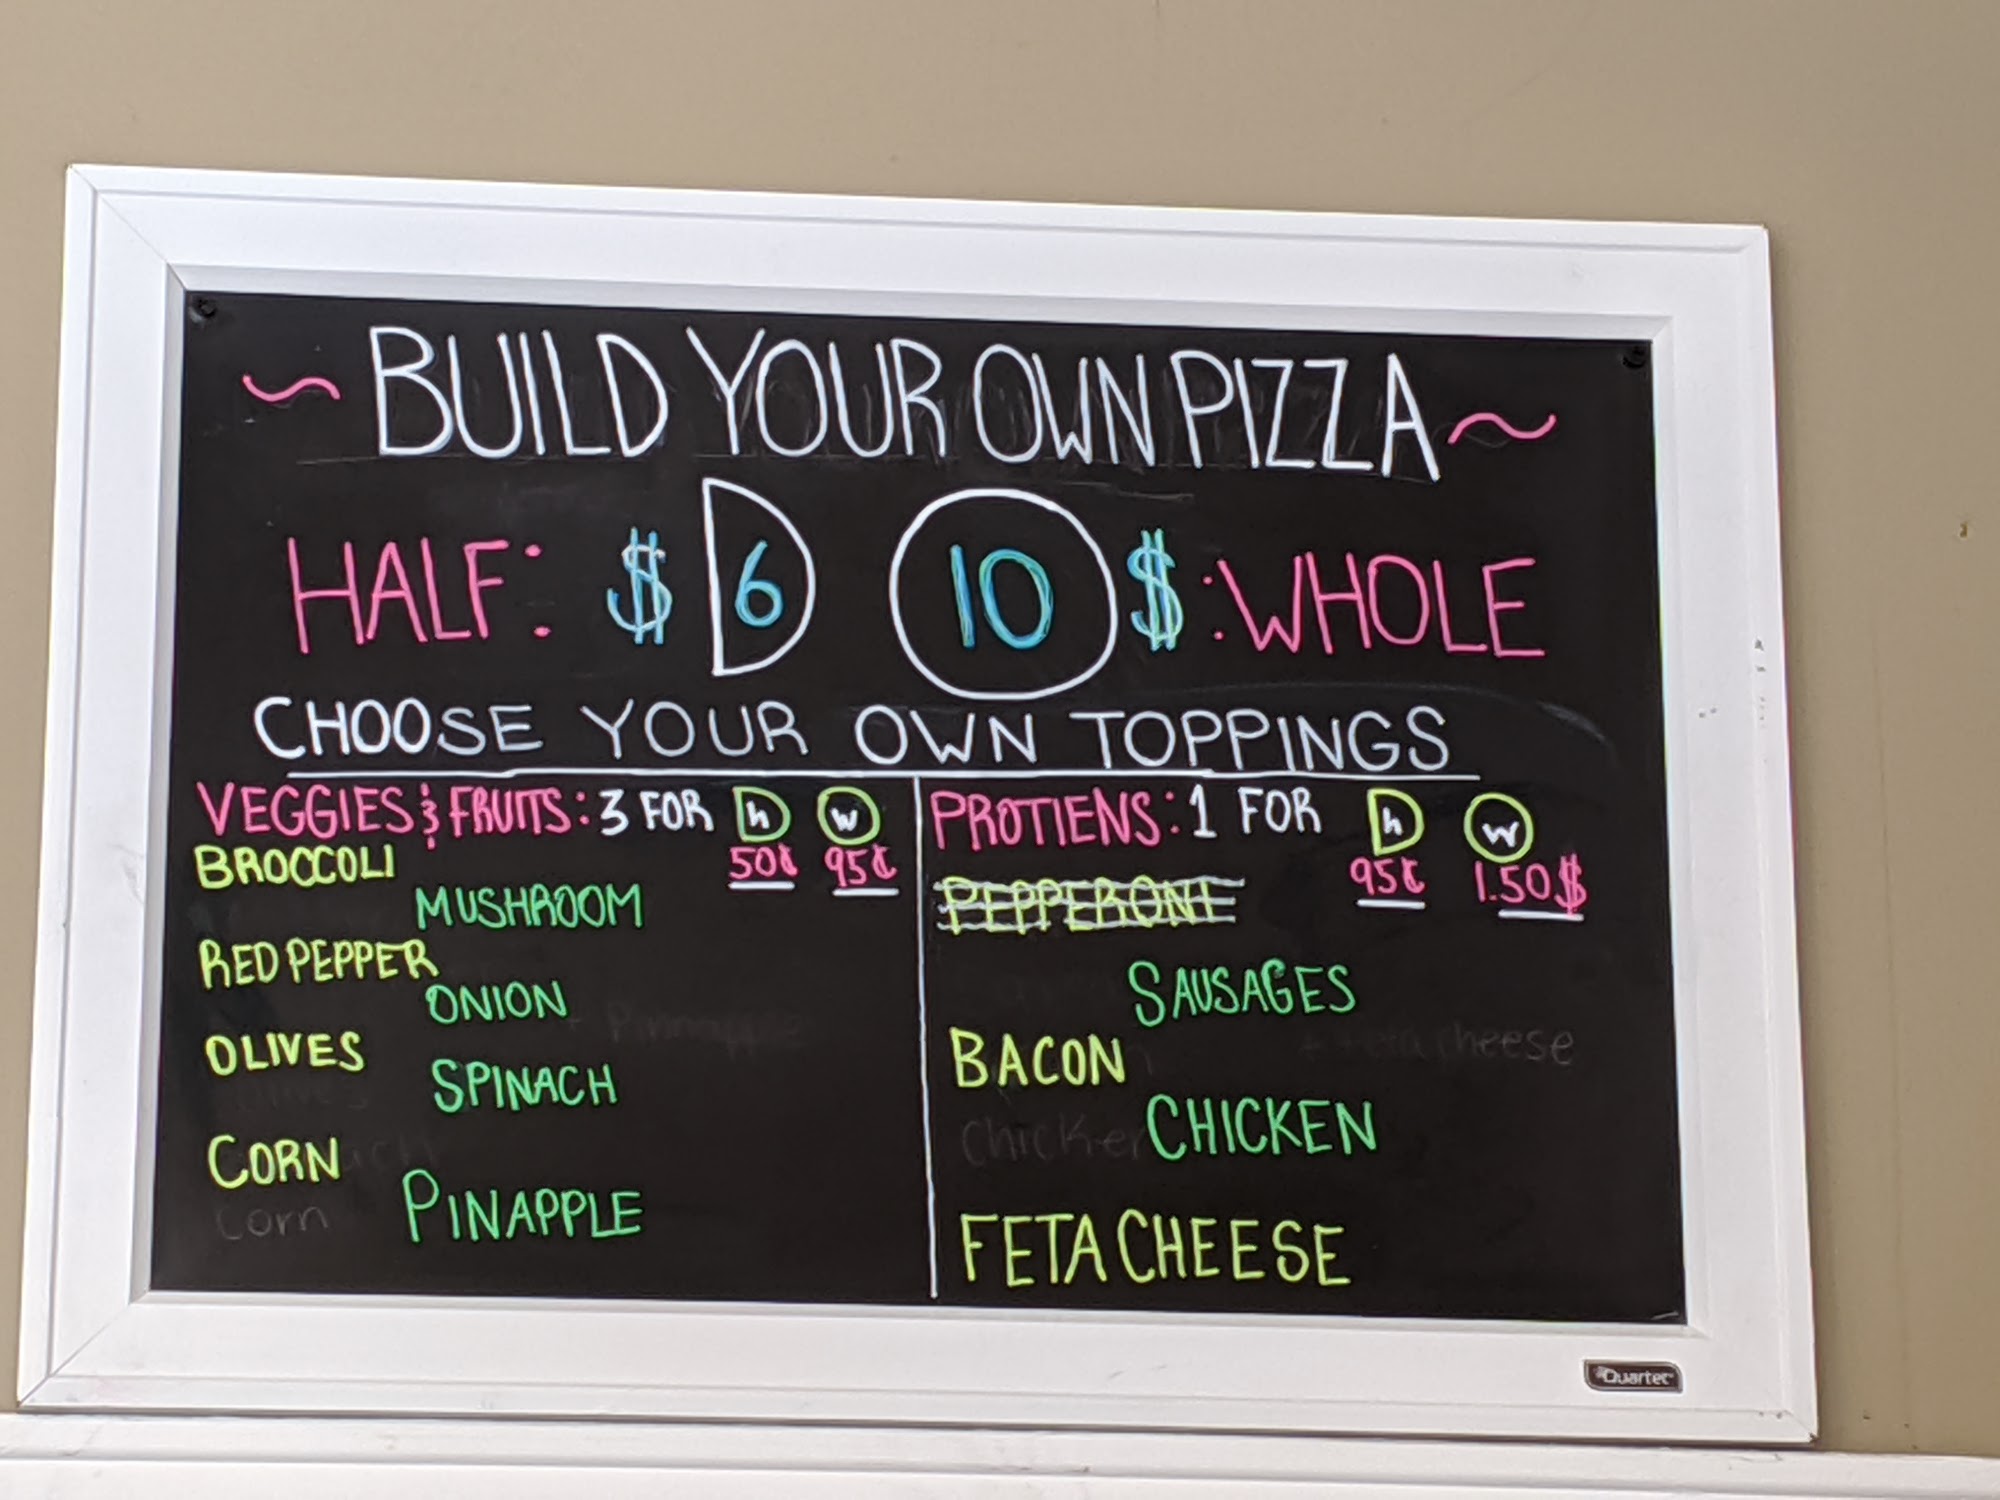 ~ BUILD YOUR OWN PIZZA ~
HALF: $ 6 10 $ :WHOLE
CHOOSE YOUR OWN TOPPINGS
VEGGIES & FRUITS: 3 FOR h w
50¢ 95¢
BROCCOLI
MUSHROOM
RED PEPPER
ONION
OLIVES
SPINACH
CORN
corn
PINAPPLE
PROTIENS: 1 FOR h w
95¢ 1.50$
PEPPERONI
SAUSAGES
BACON
cheese
CHICKEN
Chicken
FETA CHEESE
Quartet